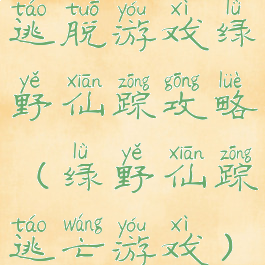 táo tuō yóu xì lǜ
逃脱游戏绿
yě xiān zōng gōng lüè
野仙踪攻略
lǜ yě xiān zōng
(绿野仙踪
táo wáng yóu xì
逃亡游戏)